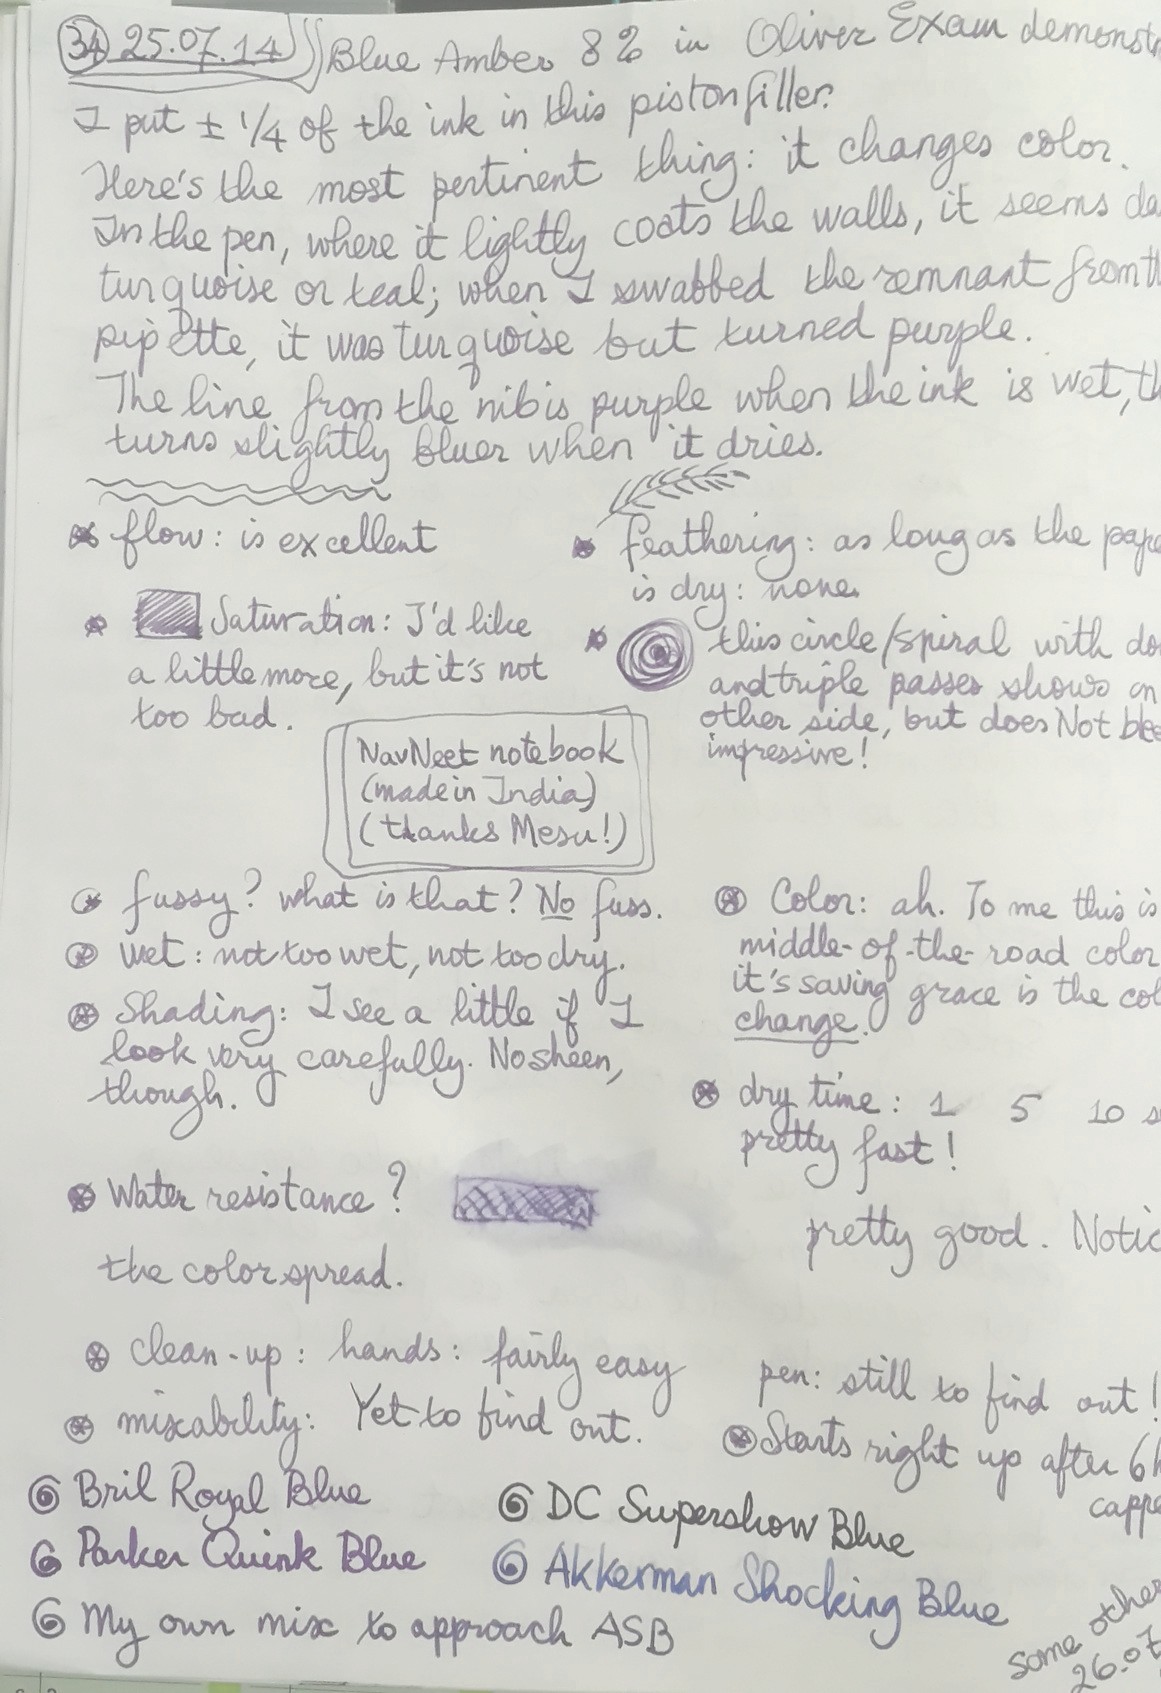 34 25.07.14 Blue Amber 82 in Oliver Exam demonst
I put ± 1/4 of the ink in this pistonfiller.
Here's the most pertinent thing: it changes color.
In the pen, where it lightly coats the walls, it seems da
turquoise or teal; when I swabbed the remnant from th
pipette, it was turquoise but turned purple.
The line from the nib is purple when the ink is wet, th
turns slightly bluer when it dries.
flow: is excellent
feathering: as long as the pape
is dry: none.
Saturation: I'd like
a little more, but it's not
too bad.
this circle/spiral with do
and triple passes shows on
other side, but does Not blee
impressive!
NavNeet notebook
(made in India)
(thanks Mesu!)
fussy? what is that? No fuss.
wet: not too wet, not too dry.
Shading: I see a little if I
look very carefully. No sheen,
though.
Color: ah. To me this is
middle-of-the-road color
it's saving grace is the col
change.
dry time: 1 5 10 s
pretty fast!
Water resistance? pretty good. Notic
the color spread.
clean-up: hands: fairly easy pen: still to find out!
mixability: Yet to find out.
Starts right up after 6h
cappe
Bril Royal Blue
DC Supershow Blue
Parker Quink Blue
Akkerman Shocking Blue
My own mix to approach ASB
some other
26.07